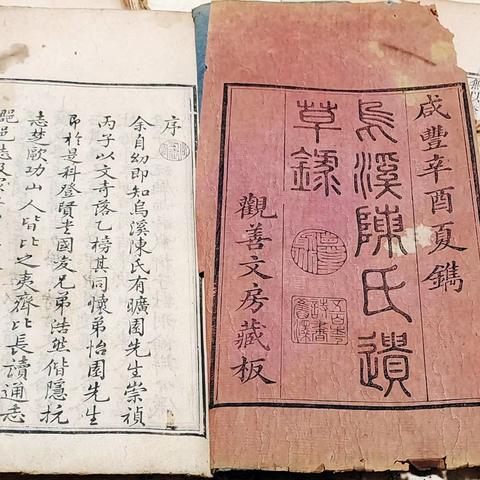 咸豐辛酉夏鐫
烏溪陳氏遺
草錄
觀善文房藏板
序
余自幼即知烏溪陳氏有曠園先生崇禎
丙子以文奇落乙榜其同懷弟怡園先生
即於是科登賢書國變兄弟浩然偕隱抗
志楚歌功山人皆比之夷齊比長讀通志
邑志及家